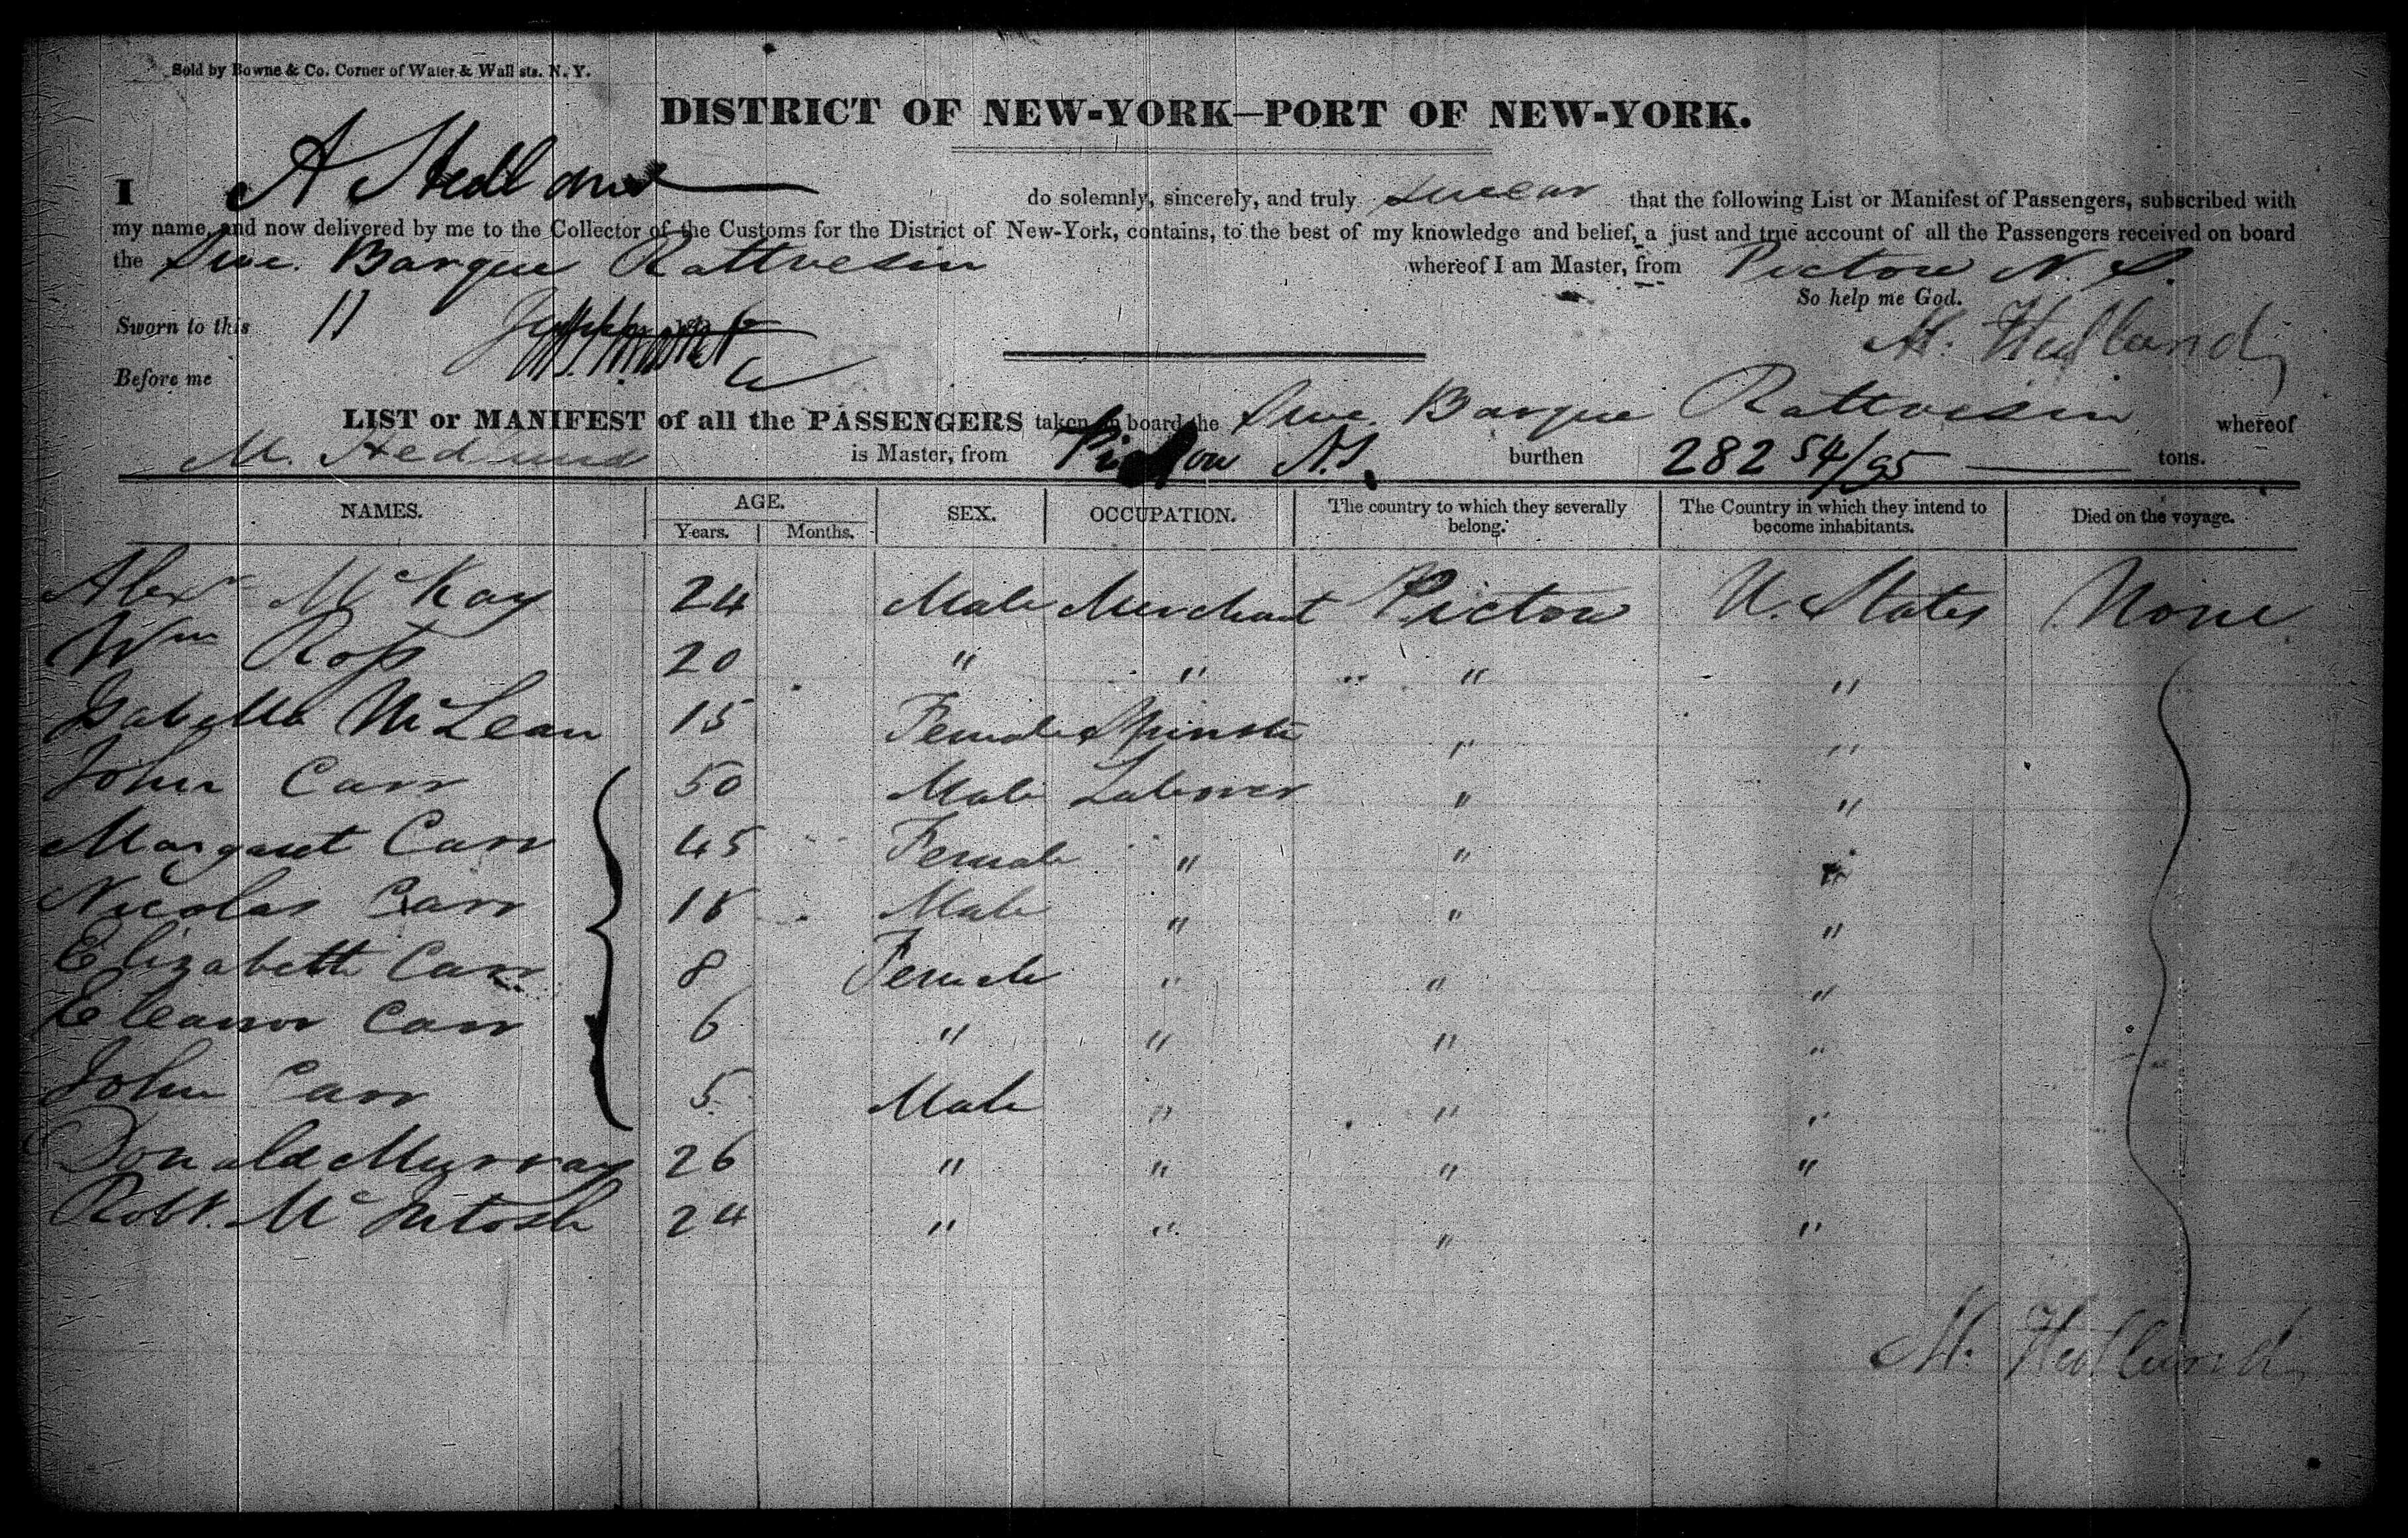 Sold by Bowne & Co. Corner of Water & Wall sts. N. Y.
DISTRICT OF NEW-YORK—PORT OF NEW-YORK.
I A Hedland do solemnly, sincerely, and truly swear that the following List or Manifest of Passengers, subscribed with
my name, and now delivered by me to the Collector of the Customs for the District of New-York, contains, to the best of my knowledge and belief, a just and true account of all the Passengers received on board
the Swe. Barque Rattvesin whereof I am Master, from Pictou N. S.
So help me God.
Sworn to this 11
M. Hedlund
Before me
LIST or MANIFEST of all the PASSENGERS taken on board the Swe. Barque Rattvesin whereof
M. Hedlund is Master, from Pictou N.S. burthen 282 54/95 tons.
NAMES. AGE. SEX. OCCUPATION. The country to which they severally belong. The Country in which they intend to become inhabitants. Died on the voyage.
Years. Months.
Alexr McKay 24 Male Merchant Pictou U. States None
Wm Ross 20 " " " "
Isabella McLean 15 Female Spinster " "
John Carr 50 Male Labourer " "
Margaret Carr 45 Female " " "
Nicolas Carr 18 Male " " "
Elizabeth Carr 8 Female " " "
Eleanor Carr 6 " " " "
John Carr 5 Male " " "
Donald Murray 26 " " " "
Robt. McIntosh 24 " " " "
M. Hedlund